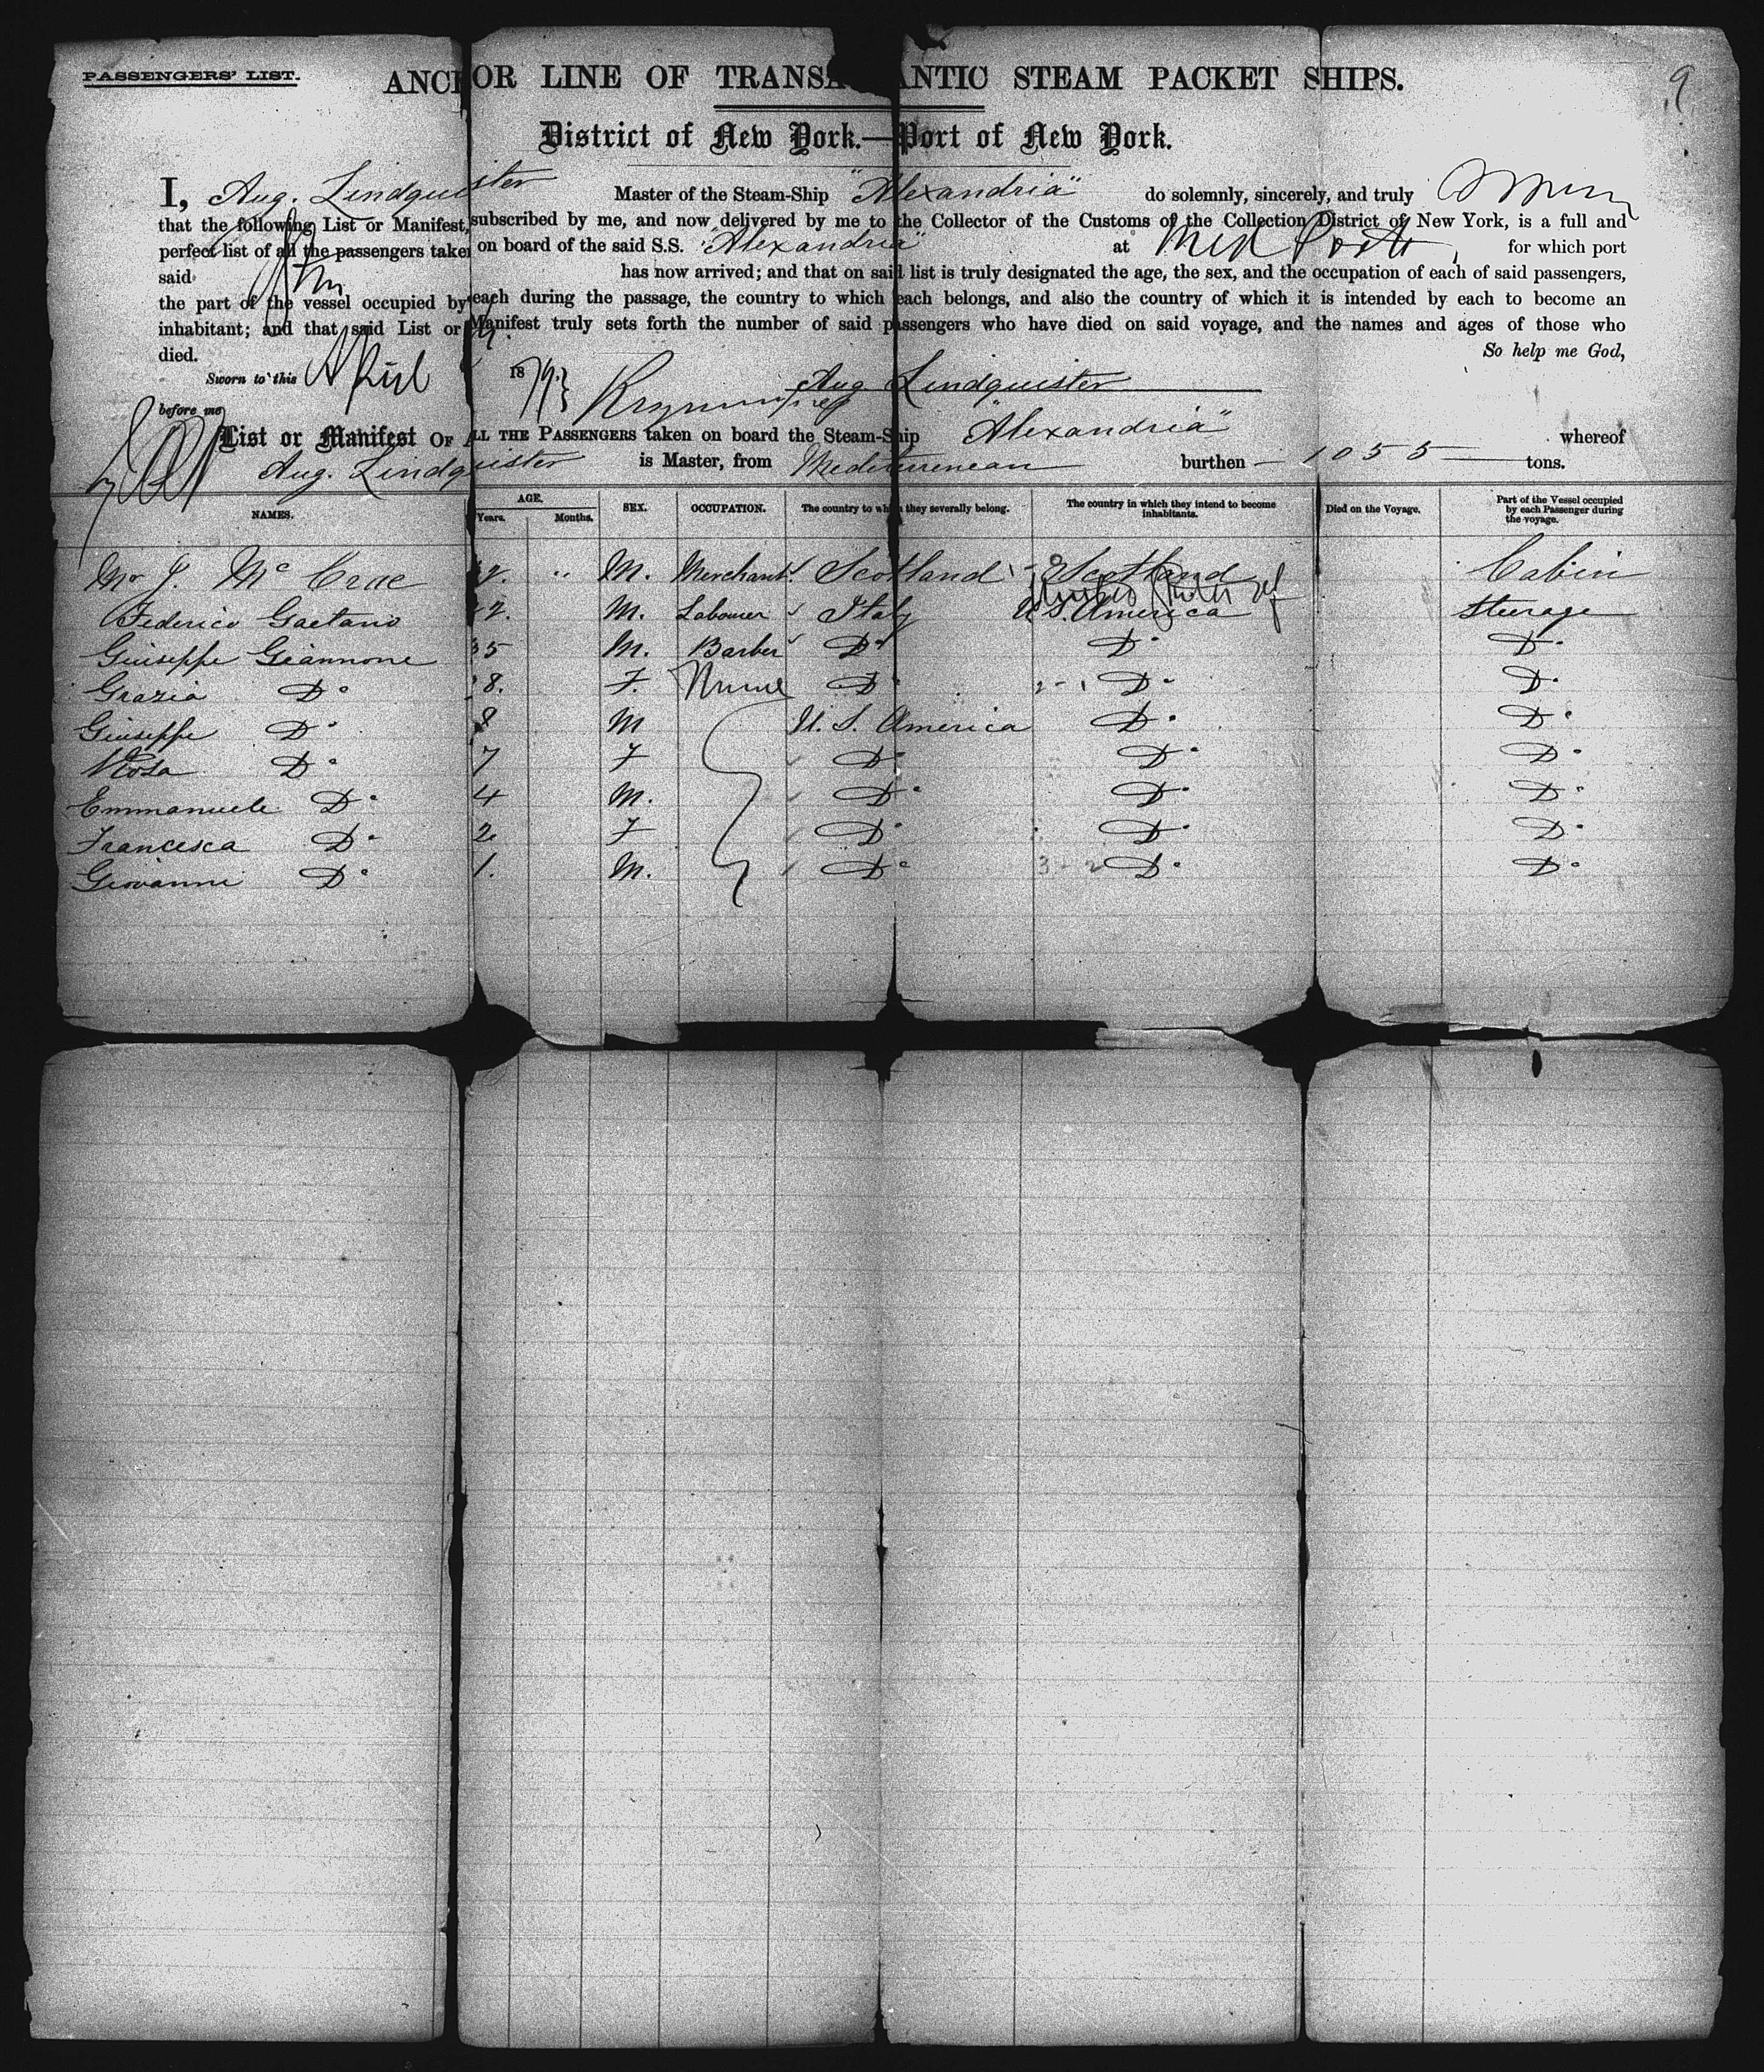 PASSENGERS' LIST.
9
ANCHOR LINE OF TRANSA ANTIC STEAM PACKET SHIPS.
District of New York.—Port of New York.
I, Aug. Lindquister Master of the Steam-Ship "Alexandria" do solemnly, sincerely, and truly
that the following List or Manifest, subscribed by me, and now delivered by me to the Collector of the Customs of the Collection District of New York, is a full and
perfect list of all the passengers taken on board of the said S.S. "Alexandria" at Med Ports, for which port
said has now arrived; and that on said list is truly designated the age, the sex, and the occupation of each of said passengers,
the part of the vessel occupied by each during the passage, the country to which each belongs, and also the country of which it is intended by each to become an
inhabitant; and that said List or Manifest truly sets forth the number of said passengers who have died on said voyage, and the names and ages of those who
died. So help me God,
Sworn to this April 1879 Aug. Lindquister
before me
List or Manifest OF ALL THE PASSENGERS taken on board the Steam-Ship "Alexandria" whereof
Aug. Lindquister is Master, from Mediterrenean burthen 1055 tons.
NAMES. AGE. Years. Months. SEX. OCCUPATION. The country to which they severally belong. The country in which they intend to become inhabitants. Died on the Voyage. Part of the Vessel occupied by each Passenger during the voyage.
Mr J. Mc Crae 2. " M. Merchant Scotland Scotland Cabin
Federico Gaetano 2. M. Labourer Italy U.S. America Steerage
Giuseppe Giannone 35 M. Barber Do Do Do
Grazia Do 8. F. Do Do Do
Giuseppe Do 8 M U. S. America Do Do
Rosa Do 7 F Do Do Do
Emmanuele Do 4 M. Do Do Do
Francesca Do 2 F Do Do Do
Giovanni Do 1. M. Do Do Do